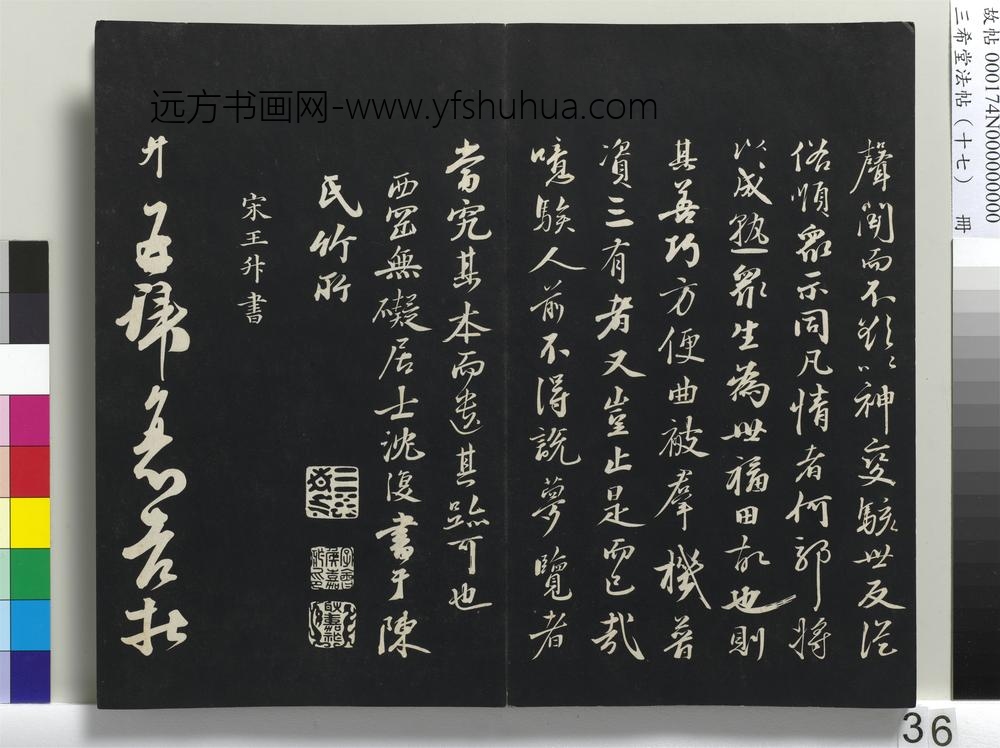 远方书画网-www.yfshuhua.com
聲聞而不欲以神變駭世反從
俗順眾示同凡情者何邪將
以成熟眾生為世福田故也則
其善巧方便曲被羣機普
資三有者又豈止是而已哉
噫騃人前不得說夢覽者
當究其本而遺其跡可也
西宮無礙居士沈復書于陳
氏竹所
宋王升書
升
故帖 000174N000000000
三希堂法帖（十七） 冊
36